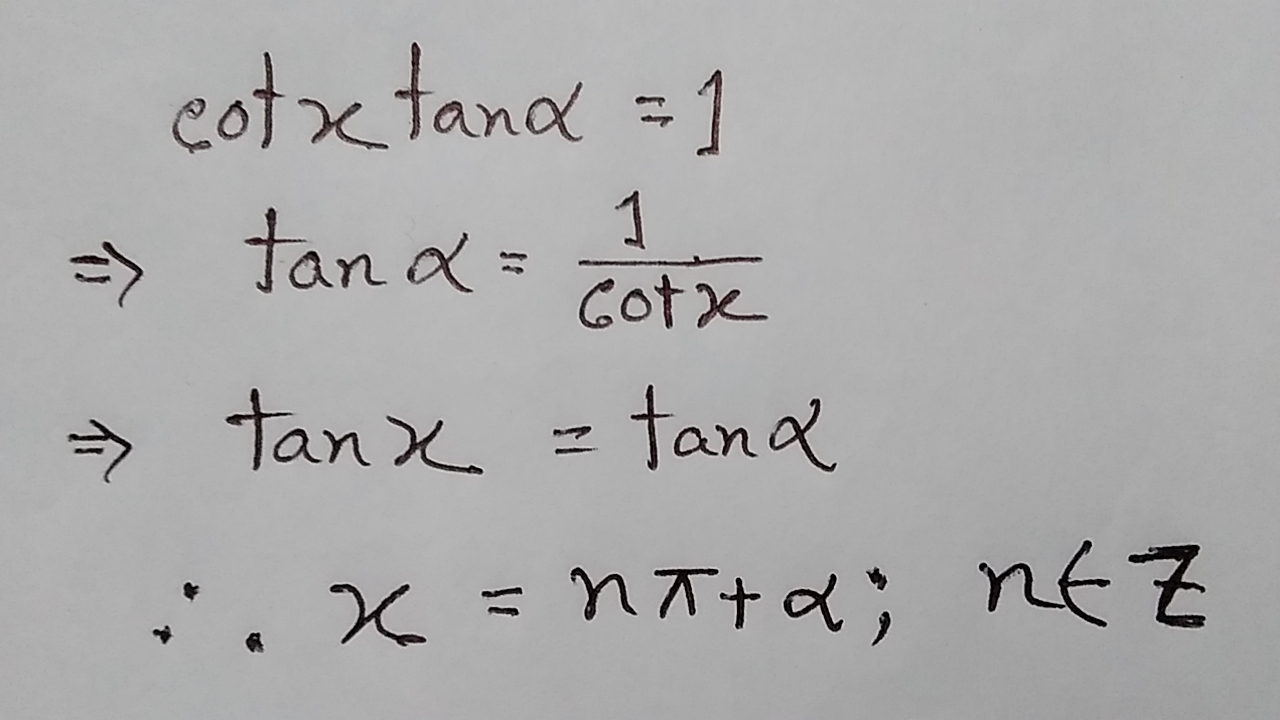 cotx tanα = 1
⇒ tanα = 1/cotx
⇒ tanx = tanα
∴ x = nπ+α; n∈Z